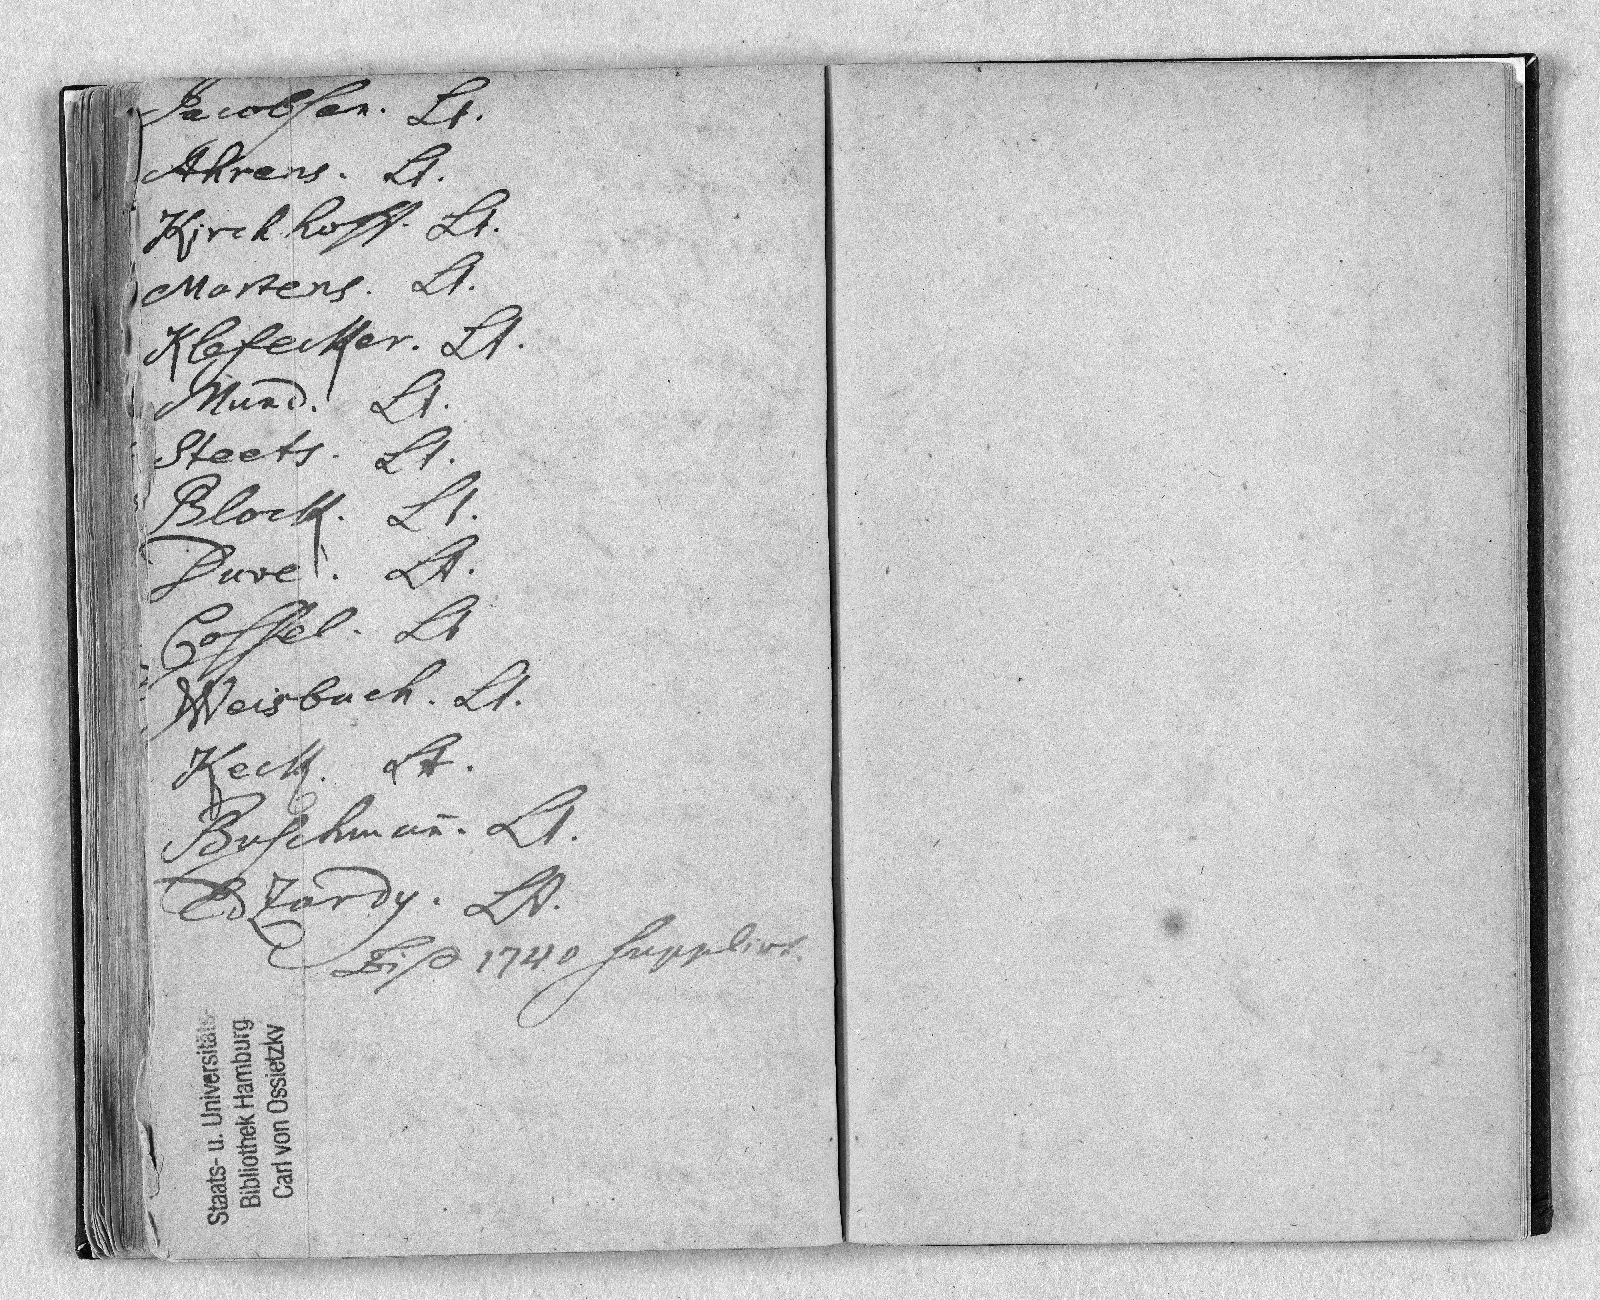 Jacobsen. Lt.
Ahrens. Lt.
Kirchhoff. Lt.
Martens. Lt.
Klefecker. Lt.
Mund. Lt.
Steets. Lt.
Block. Lt.
Dure. Lt.
Gossel. Lt
Weisbach. Lt.
Keck. Lt.
Buschman̄. Lt.
Edzardy. Lt.
1740
Staats- u. Universitäts-
Bibliothek Hamburg
Carl von Ossietzky